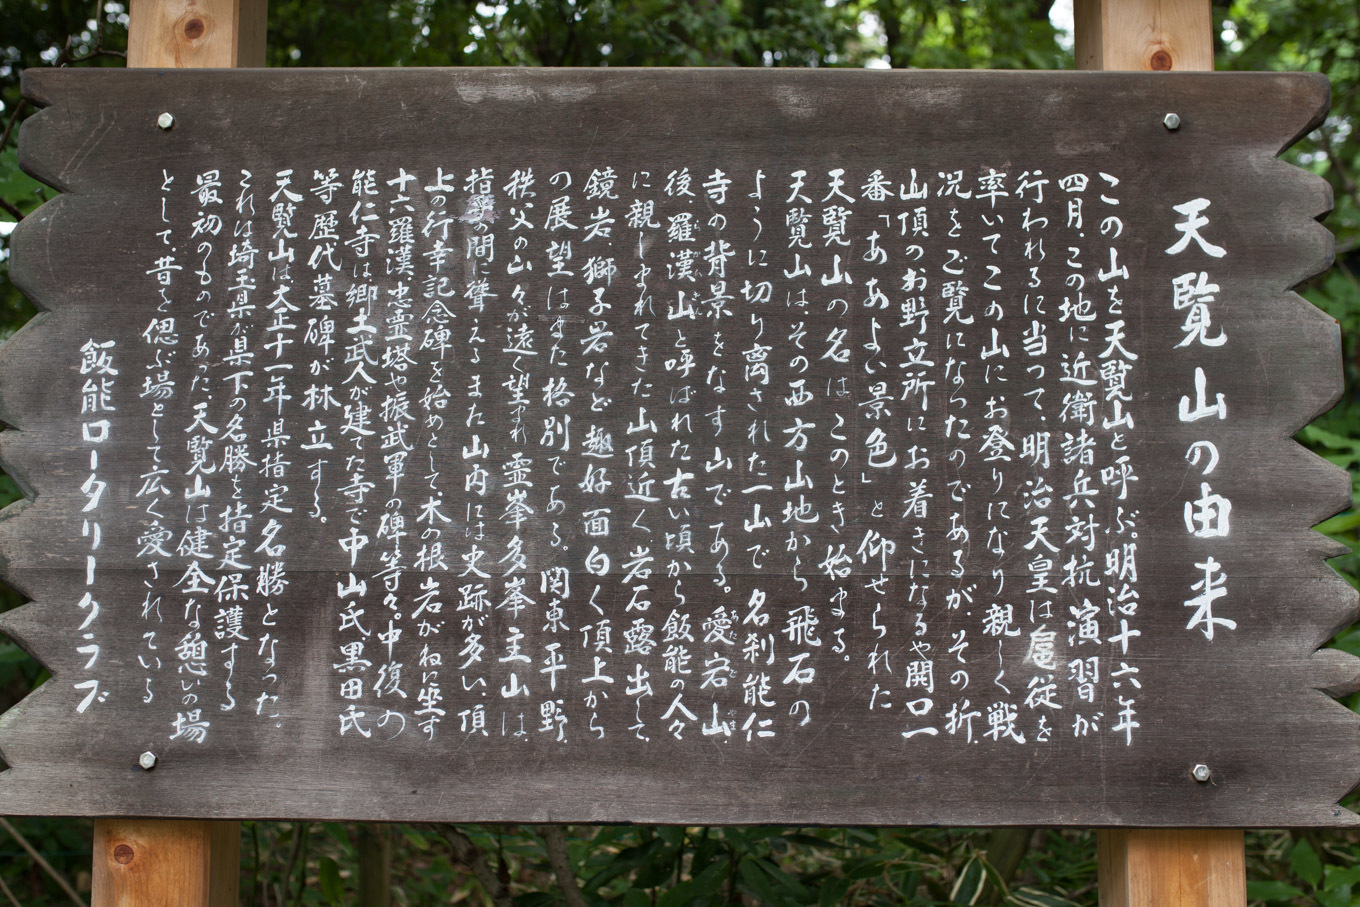 天覧山の由来
この山を天覧山と呼ぶ。明治十六年
四月、この地に近衛諸兵対抗演習が
行われるに当って、明治天皇は扈従を
率いてこの山にお登りになり親しく戦
況をご覧になったのであるが、その折、
山頂のお野立所にお着きになるや開口一
番「ああよい景色」と仰せられた
天覧山の名はこのとき始まる。
天覧山は、その西方山地から飛石の
ように切り離された一山で名刹能仁
寺の背景をなす山である。愛宕山、
後、羅漢山と呼ばれた古い頃から飯能の人々
に親しまれてきた山頂近く、岩石露出して、
鏡岩、獅子岩など趣好面白く頂上から
の展望はまた格別である。関東平野、
秩父の山々が遠く望まれ霊峯多峯主山は、
指呼の間に聳えるまた山内には史跡が多い、頂
上の行幸記念碑を始めとして、木の根岩がねに坐す
十六羅漢、忠霊塔や振武軍の碑等々。中復の
能仁寺は郷土武人が建てた寺で中山氏黒田氏
等歴代墓碑が林立する。
天覧山は大正十一年県指定名勝となった。
これは埼玉県が県下の名勝を指定保護する
最初のものであった、天覧山は健全な憩いの場
として、昔を偲ぶ場として広く愛されている
飯能ロータリークラブ